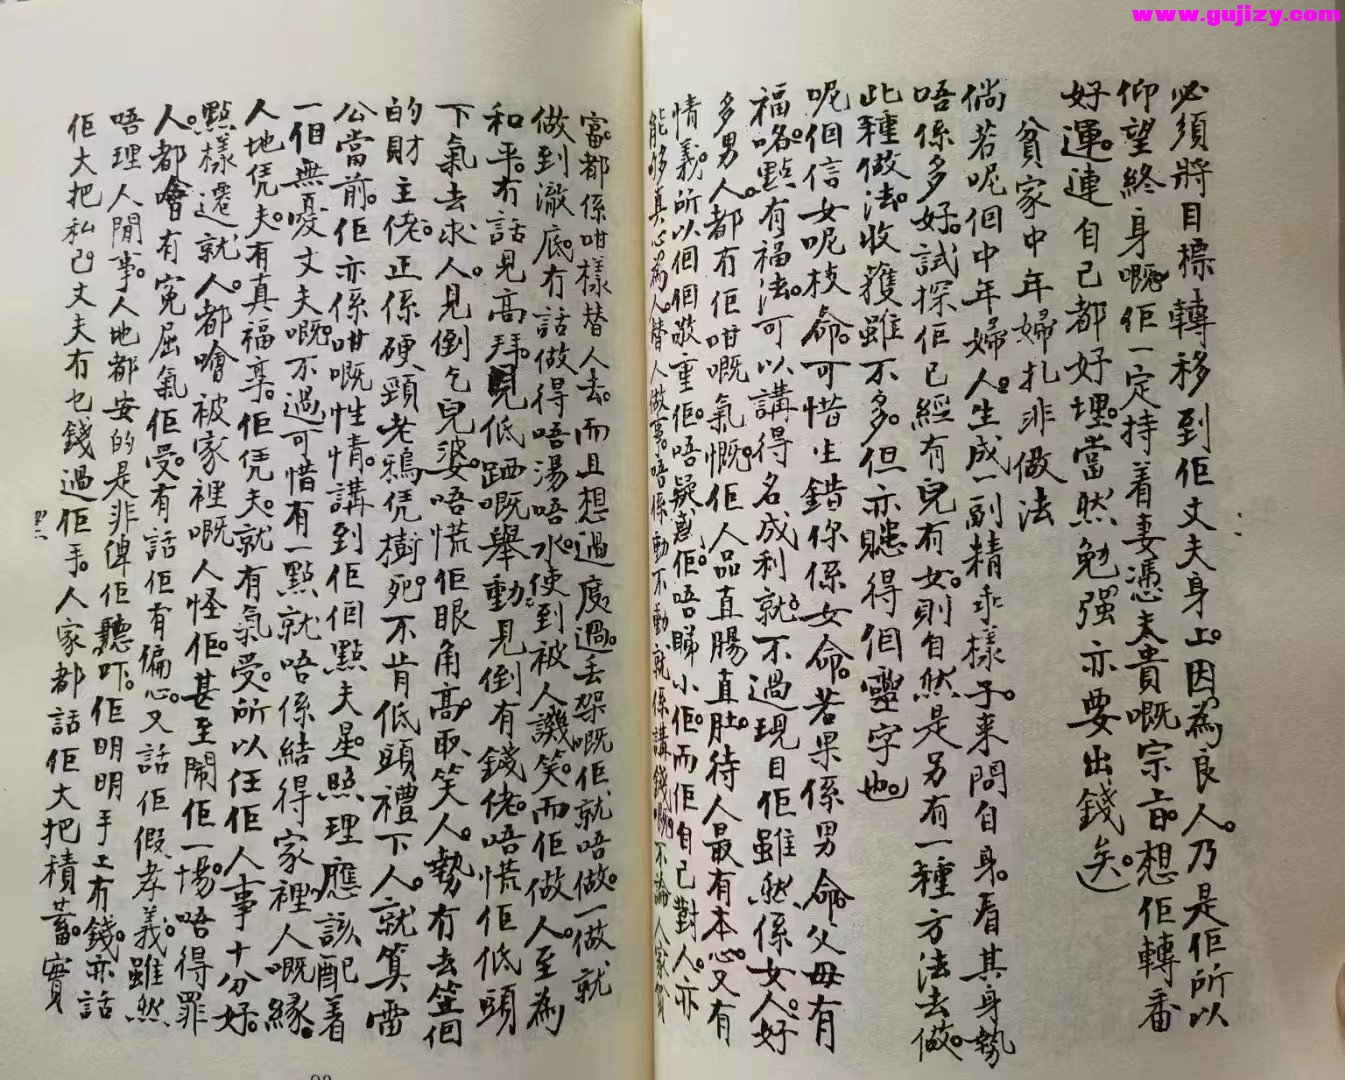 www.gujizy.com
必須將目標轉移到佢丈夫身上。因為良人。乃是佢所以
仰望終身嘅。佢一定持着妻憑夫貴嘅宗旨。想佢轉番
好運。連自己都好埋。當然勉强亦要出錢矣。
貧家中年婦扎非做法
倘若呢個中年婦人。生成一副精乖樣子。來問自身。看其身勢
唔係多好。試探佢已經有兒有女。則自然是另有一種方法去做。
此種做法。收獲雖不多。但亦賺得個靈字也。
呢個信女呢枝命。可惜生錯你係女命。若果係男命。父母有
福咯。點有福法。可以講得名成利就。不過現目佢雖然係女人。好
多男人都冇佢咁嘅氣慨。佢人品直腸直肚。待人最有本心。又有
情義。所以個個敬重佢。唔疑惑佢。唔睇小佢。而佢自己對人。亦
能够真心為人。替人做事。唔係動不動就係講錢嘅。不論人家貧
富。都係咁樣替人去。而且想過度過丢架嘅。佢就唔做。一做就
做到澈底。冇話做得唔湯唔水。使到被人譏笑。而佢做人。至為
和平。冇話見高拜。見低踩嘅舉動。見倒有錢佬。唔慌佢低頭
下氣去求人。見倒乞兒婆。唔慌佢眼角高。取笑人。勢冇去笠個
的財主佬。正係硬頸老鴉凭樹死。不肯低頭禮下人。就算雷
公當前。佢亦係咁嘅性情。講到佢個點夫星。照理應該配着
一個無憂丈夫嘅。不過可惜有一點。就唔係結得家裡人嘅緣。
人地凭夫。有真福享。佢凭夫。就有氣受。所以任佢人事十分好。
點樣遷就人。都噲被家裡嘅人怪佢。甚至鬧佢一場。唔得罪
人。都噲有寃屈氣佢受。有話佢有偏心。又話佢假孝義。雖然
唔理人閒事。人地都安的是非俾佢聽吓。佢明明手上有錢。亦話
佢大把私己丈夫冇乜錢過佢手。人家都話佢大把積蓄。實